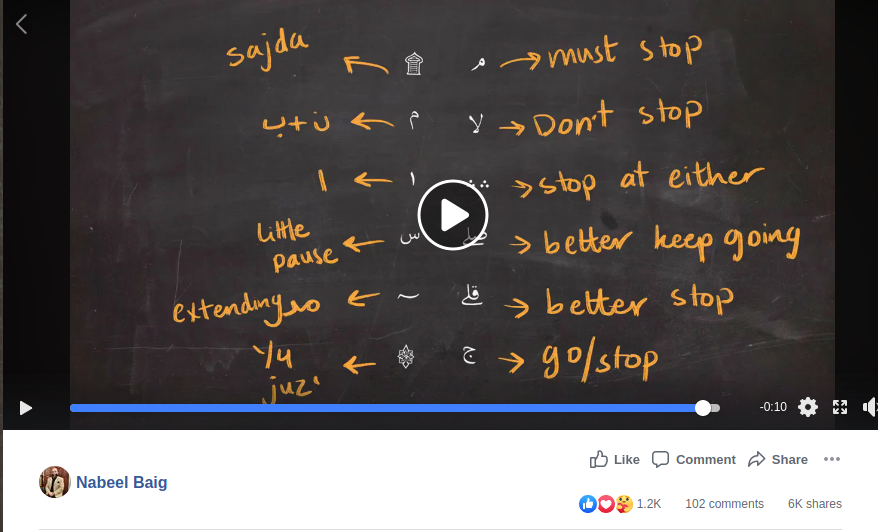 sajda ← ۩ م → must stop
ن + ب ← م لا → Don't stop
ا ← ا ∴ → stop at either
little pause ← س صلے → better keep going
extending مد ← ~ قلے → better stop
1/4 juz' ← ۞ ج → go/stop
-0:10
Like Comment Share
Nabeel Baig
1.2K 102 comments 6K shares